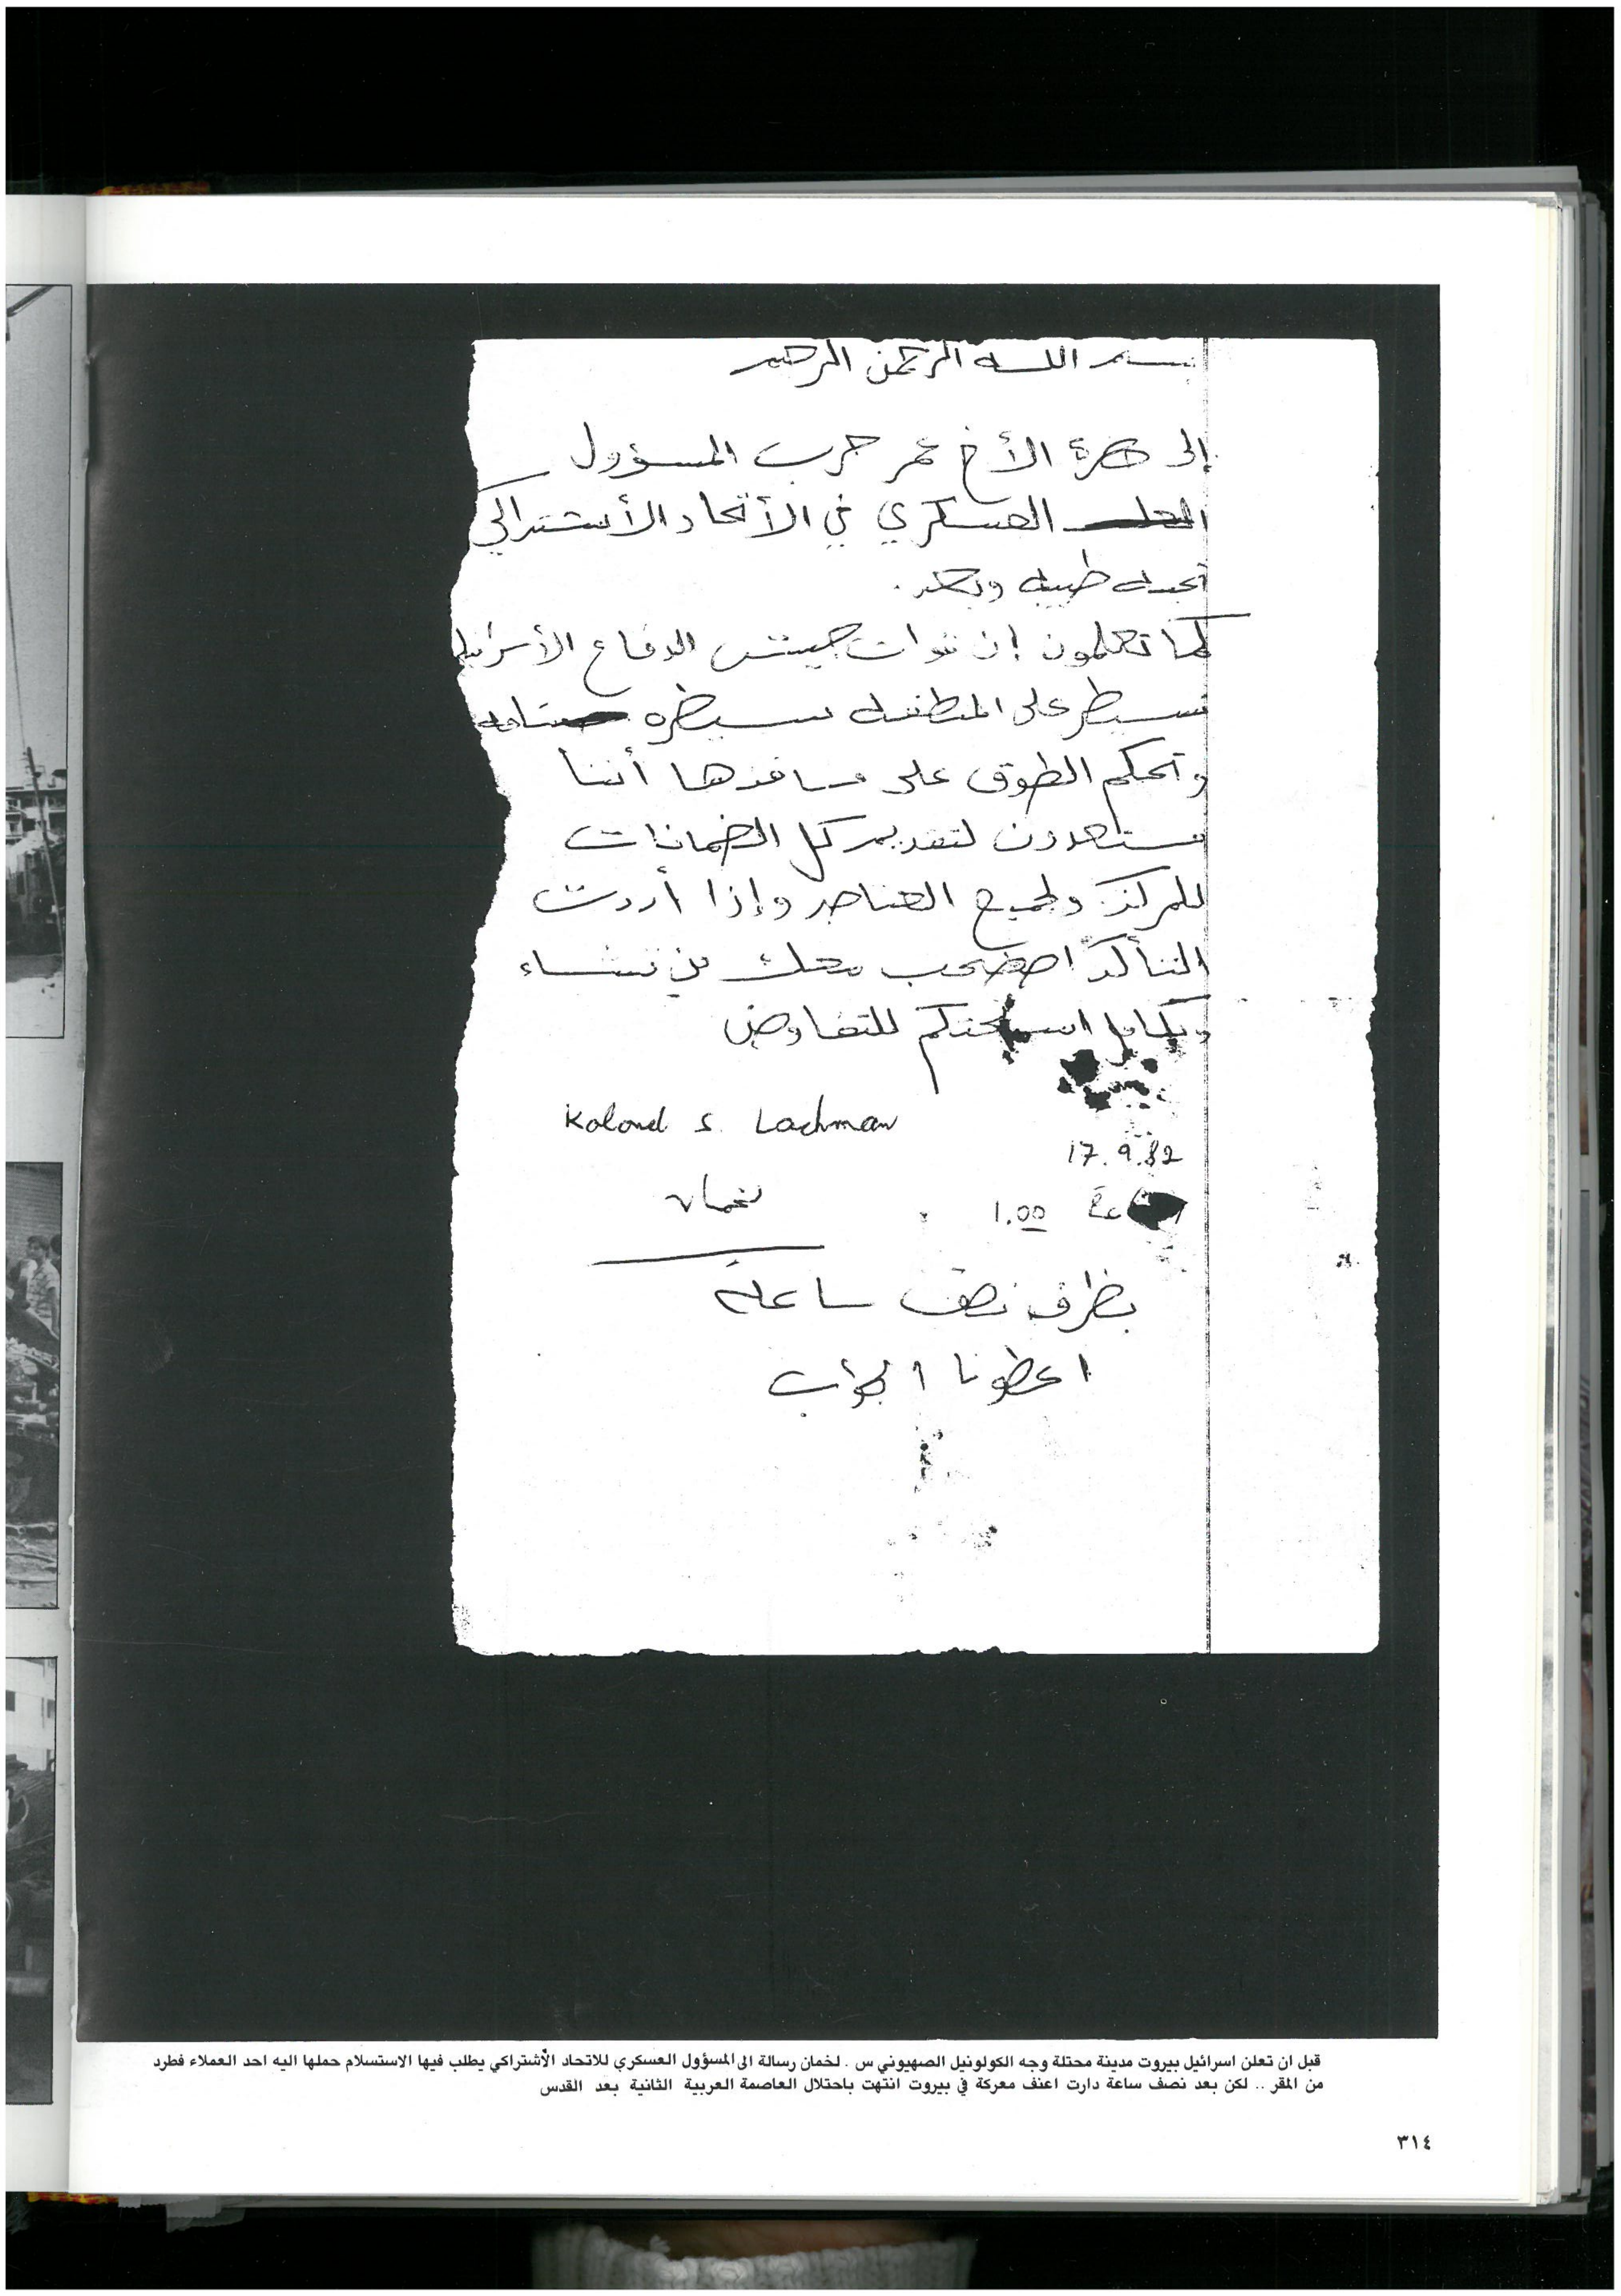 بسم الله الرحمن الرحيم
إلى حضرة الأخ عمر حرب المسؤول
العسكري في الأتحاد الأشتراكي
تحيه طيبه وبعد.
كما تعلمون إن قوات جيش الدفاع الأسرائيلي
تسيطر على المنطقه سيطره تامه
وتحكم الطوق على منافذها أننا
مستعدون لتقديم كل الضمانات
للمركز ولجميع العناصر وإذا أردت
التأكد اصطحب معك من تشاء
وبكامل اسلحتكم للتفاوض
Kolonel S. Lachman
17.9.82
لخمان
1.00
بظرف نصف ساعة
اعطونا الجواب
قبل ان تعلن اسرائيل بيروت مدينة محتلة وجه الكولونيل الصهيوني س . لخمان رسالة الى المسؤول العسكري للاتحاد الأشتراكي يطلب فيها الاستسلام حملها اليه احد العملاء فطرد
من المقر .. لكن بعد نصف ساعة دارت اعنف معركة في بيروت انتهت باحتلال العاصمة العربية الثانية بعد القدس
٣١٤